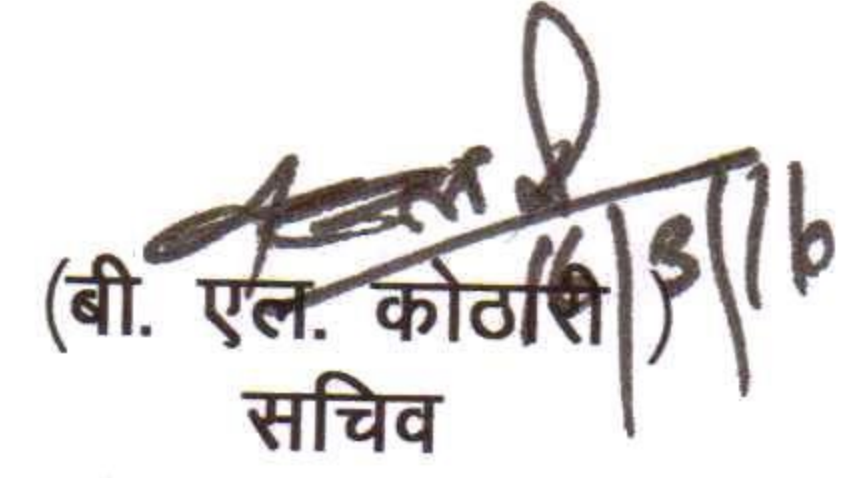 16/3/16
(बी. एल. कोठारी)
सचिव